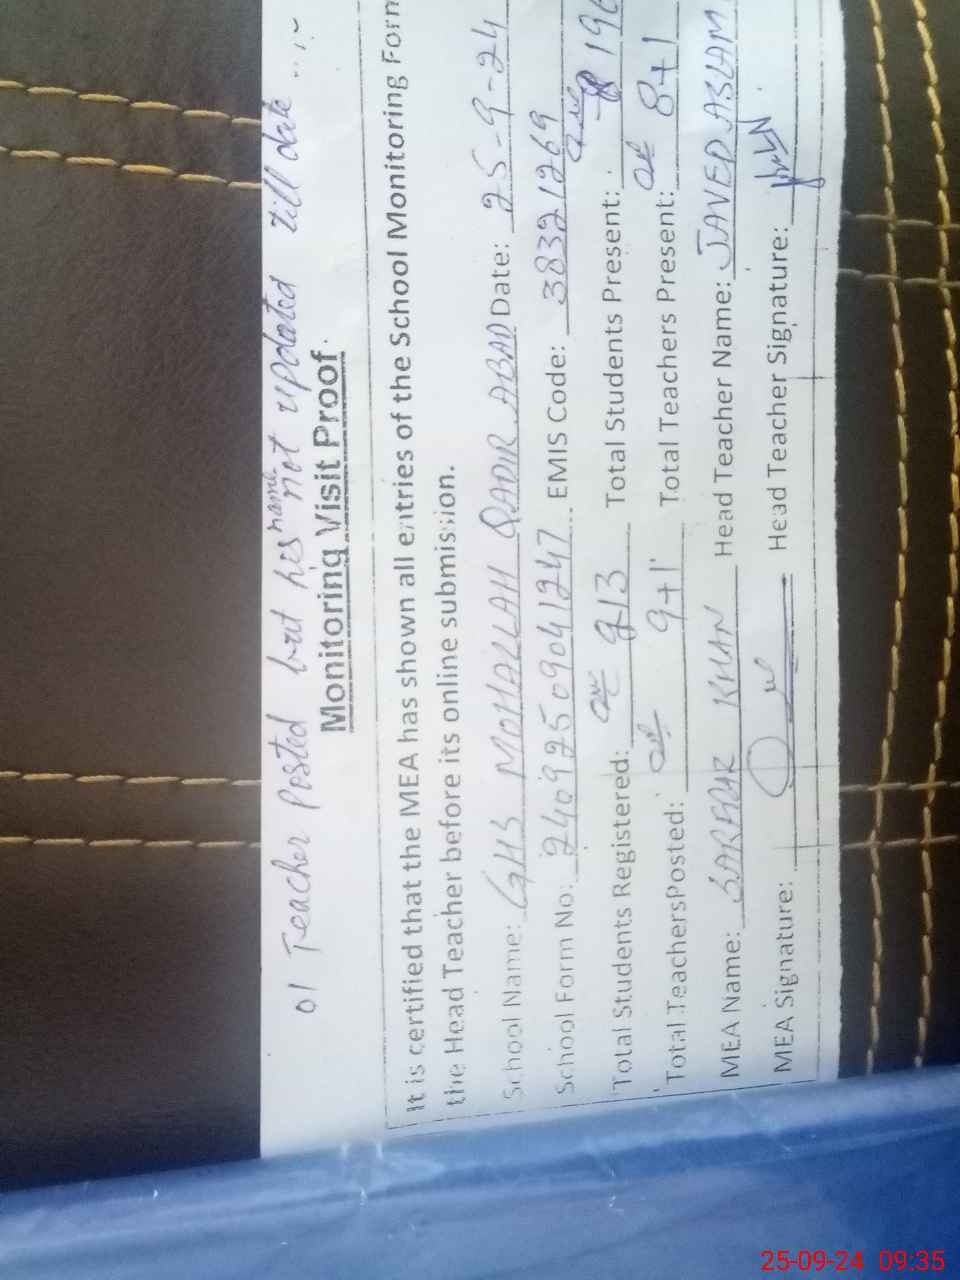 01 Teacher Posted but his name not updated till date
Monitoring Visit Proof
It is certified that the MEA has shown all entries of the School Monitoring Form
the Head Teacher before its online submission.
School Name: GHS MOHALLAH QADIR ABAD Date: 25-9-24
School Form No: 24092509041247 EMIS Code: 38321269
Total Students Registered: 213 Total Students Present: 196
Total Teachers Posted: 9+1 Total Teachers Present: 8+1
MEA Name: SARFRAZ KHAN Head Teacher Name: JAVED ASLAM
MEA Signature: Head Teacher Signature:
25-09-24 09:35